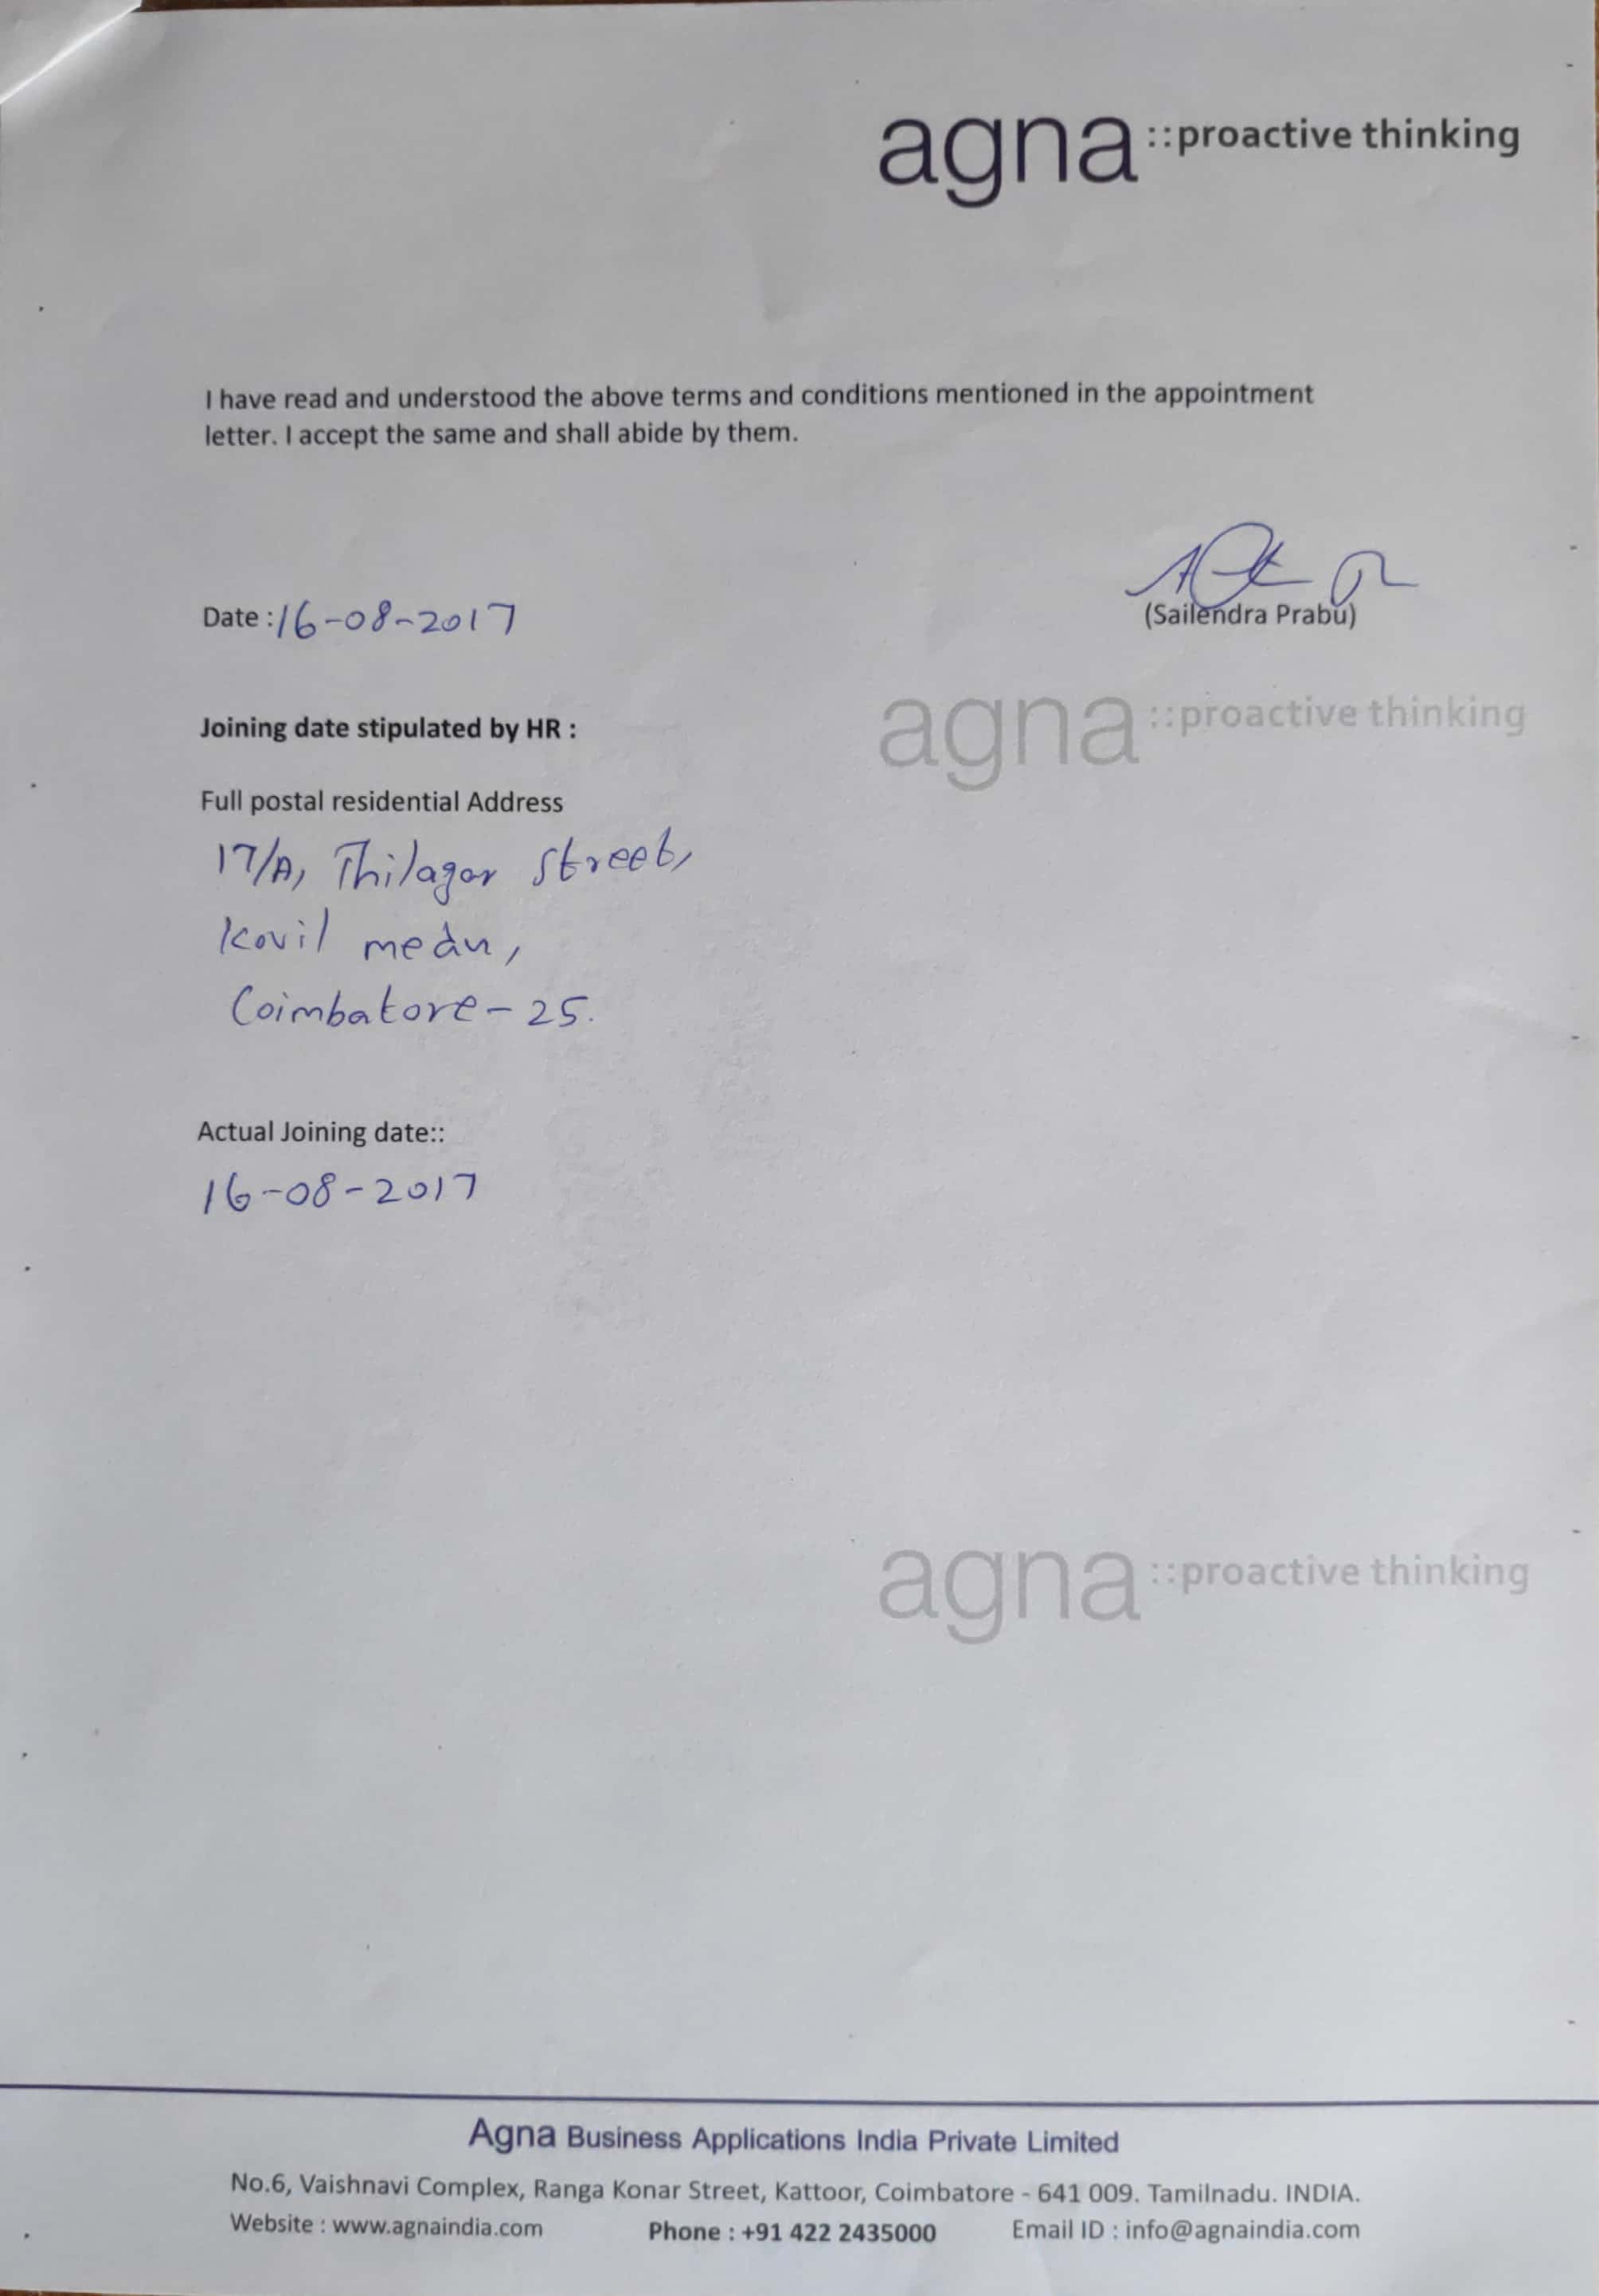 agna ::proactive thinking
I have read and understood the above terms and conditions mentioned in the appointment
letter. I accept the same and shall abide by them.
Date : 16-08-2017
(Sailendra Prabu)
agna ::proactive thinking
Joining date stipulated by HR :
Full postal residential Address
17/A, Thilagar Street,
Kovil medu,
Coimbatore - 25.
Actual Joining date::
16-08-2017
agna ::proactive thinking
Agna Business Applications India Private Limited
No.6, Vaishnavi Complex, Ranga Konar Street, Kattoor, Coimbatore - 641 009. Tamilnadu. INDIA.
Website : www.agnaindia.com Phone : +91 422 2435000 Email ID : info@agnaindia.com